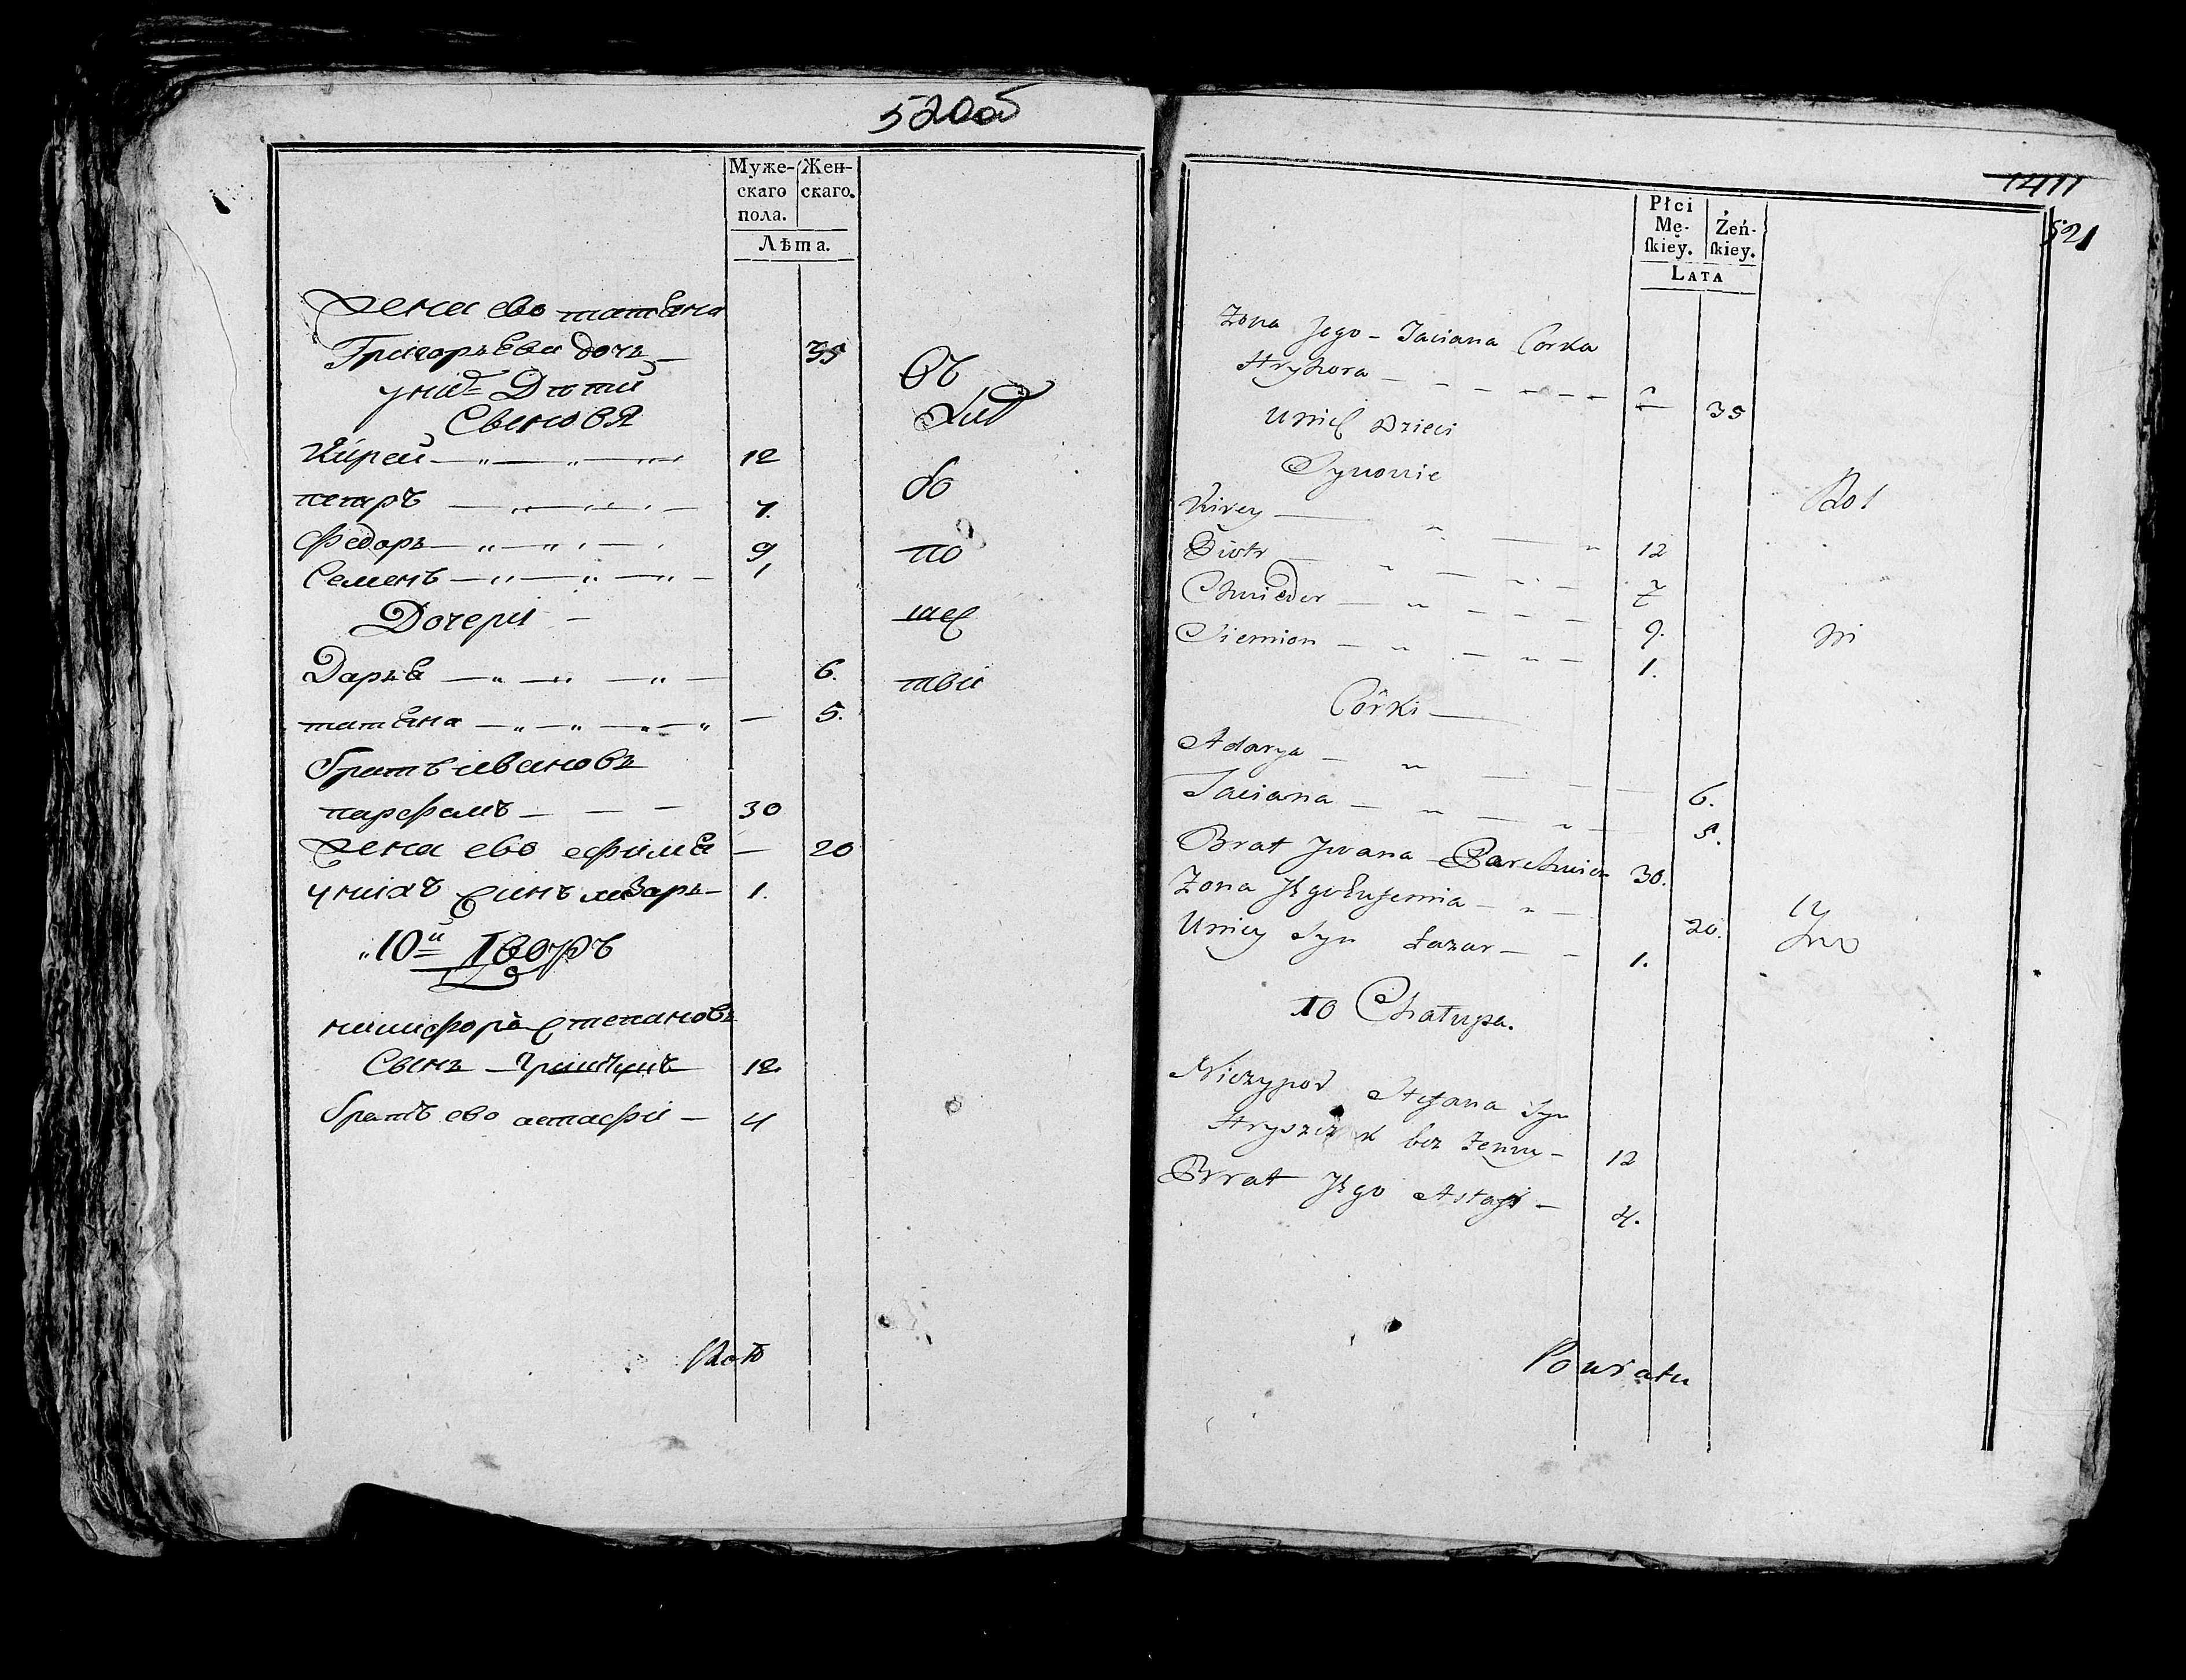 520об
Муже-
скаго
пола.
Жен-
скаго.
Лѣта.
Жена ево татѣяна
Григорьева дочь — 35
у них Дѣти
Сыновя
Кирей — 12
петръ — 7.
Федоръ — 9
Семенъ — 1
Дочери —
Дарья — 6.
татѣяна — 5.
братъ ивановъ
парфенъ — 30
Жена ево ефимия — 20
у нихъ синъ лазарь — 1.
10й Дворъ
ничипоръ степановъ
Сынъ — 12.
братъ ево астафи — 4
Объ
хлѣ
бо
па
шес
тви
1411
521
Płci
Mę-
ſkiey.
Żeń-
ſkiey.
LATA
Żona Jego - Taciana Corka
Hryhora — 35
Unich Dzieci
Synowie
Kirey — 12
Piotr — 7
Chwiedor — 9.
Siemion — 1.
Córki —
Adarya — 6.
Taciana — 5.
Brat Jwana Parchwien 30.
Zona Jego Eufemia — 20.
Unich Syn Łazar — 1.
10 Chałupa.
Niczypor Stefana Syn
bez Zenny — 12
Brat Jego Astafi — 4.
Rol
ni
ctwo
Powiatu